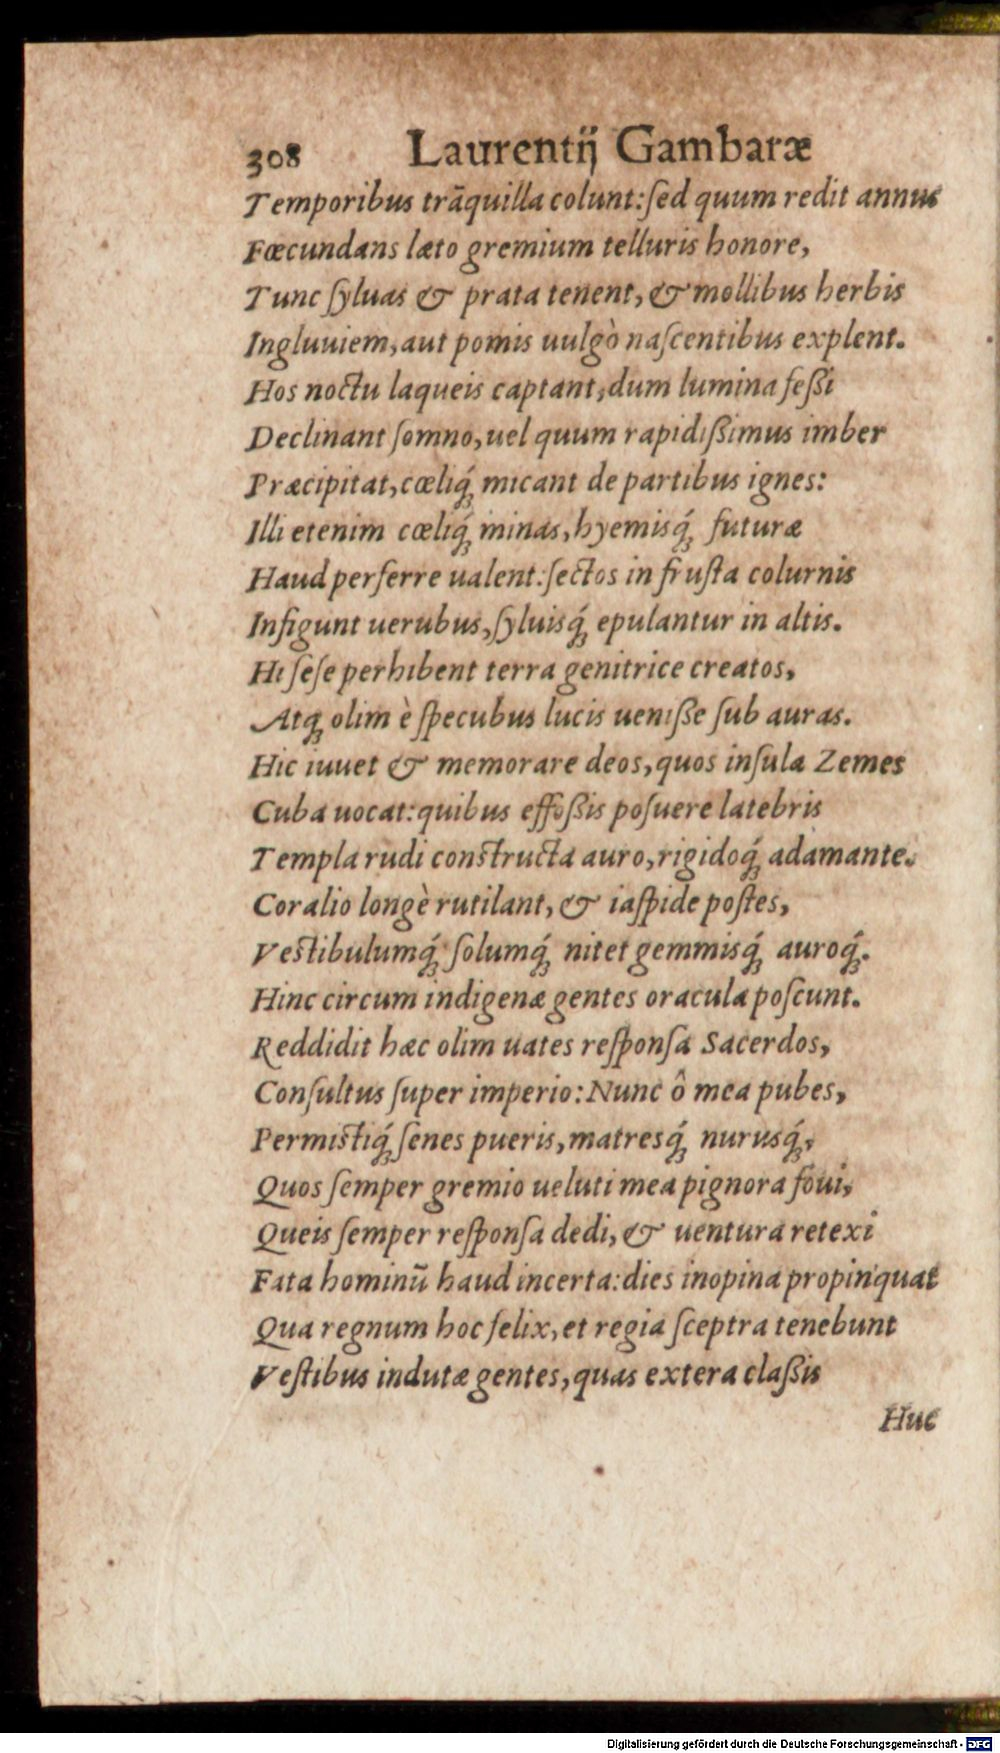 308 Laurentij Gambaræ
Temporibus trāquilla colunt: ſed quum redit annus
Fœcundans læto gremium telluris honore,
Tunc ſyluas & prata tenent, & mollibus herbis
Ingluuiem, aut pomis uulgò naſcentibus explent.
Hos noctu laqueis captant, dum lumina feßi
Declinant ſomno, uel quum rapidißimus imber
Præcipitat, cœliq́; micant de partibus ignes:
Illi etenim cœliq́; minas, hyemisq́; futuræ
Haud perferre ualent: ſectos in fruſta colurnis
Infigunt uerubus, ſyluisq́; epulantur in altis.
Hi ſeſe perhibent terra genitrice creatos,
Atq; olim è ſpecubus lucis ueniße ſub auras.
Hic iuuet & memorare deos, quos inſula Zemes
Cuba uocat: quibus effoßis poſuere latebris
Templa rudi conſtructa auro, rigidoq́; adamante.
Coralio longè rutilant, & iaſpide poſtes,
Veſtibulumq́; ſolumq́; nitet gemmisq́; auroq́;.
Hinc circum indigenæ gentes oracula poſcunt.
Reddidit hæc olim uates reſponſa Sacerdos,
Conſultus ſuper imperio: Nunc ô mea pubes,
Permiſtiq́; ſenes pueris, matresq́; nurusq́;,
Quos ſemper gremio ueluti mea pignora foui,
Queis ſemper reſponſa dedi, & uentura retexi
Fata hominū haud incerta: dies inopina propinquat
Qua regnum hoc felix, et regia ſceptra tenebunt
Veſtibus indutæ gentes, quas extera claßis
Huc
Digitalisierung gefördert durch die Deutsche Forschungsgemeinschaft - DFG